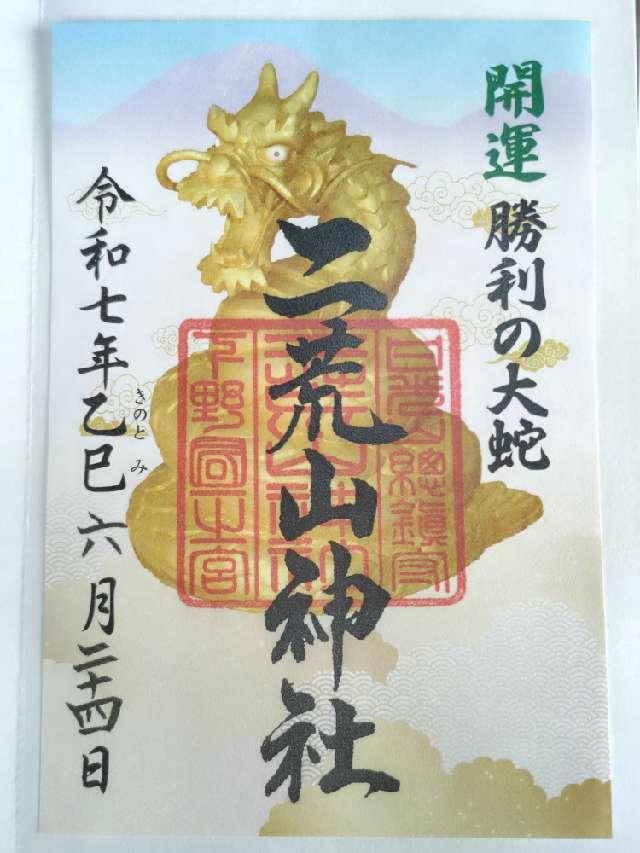 開運 勝利の大蛇
二荒山神社
日光山總鎮守
二荒山神社
下野國一宮
令和七年乙巳六月二十四日
きのと み